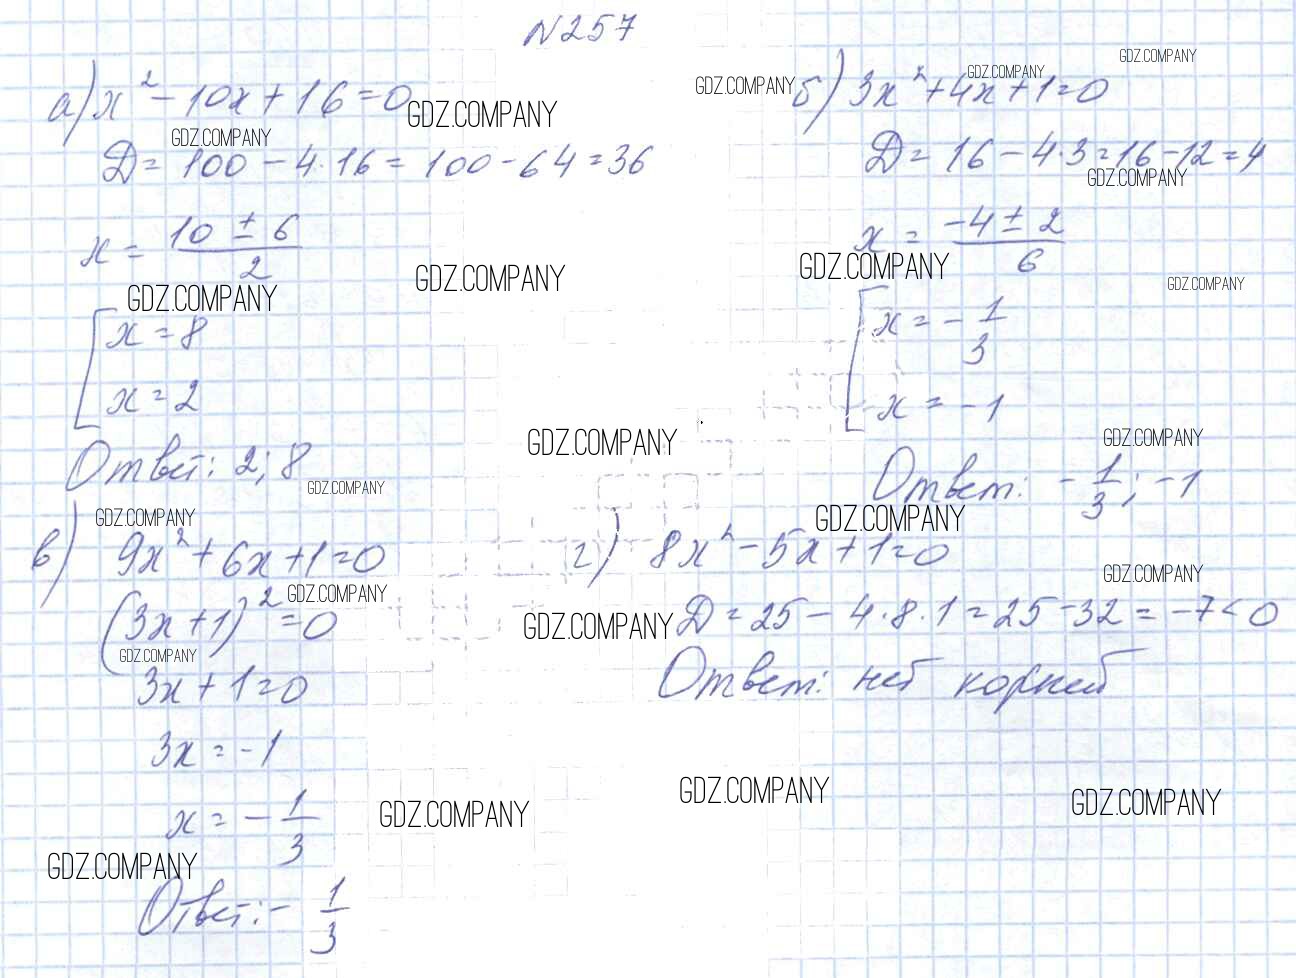 N257
а) x² - 10x + 16 = 0
GDZ.COMPANY
GDZ.COMPANY
D = 100 - 4·16 = 100 - 64 = 36
x = (10 ± 6)/2
GDZ.COMPANY
GDZ.COMPANY
[ x = 8
x = 2
Ответ: 2; 8
GDZ.COMPANY
GDZ.COMPANY
GDZ.COMPANY
GDZ.COMPANY
б) 3x² + 4x + 1 = 0
D = 16 - 4·3 = 16 - 12 = 4
GDZ.COMPANY
x = (-4 ± 2)/6
GDZ.COMPANY
GDZ.COMPANY
[ x = -1/3
x = -1
GDZ.COMPANY
GDZ.COMPANY
Ответ: -1/3; -1
GDZ.COMPANY
GDZ.COMPANY
в) 9x² + 6x + 1 = 0
GDZ.COMPANY
(3x + 1)² = 0
GDZ.COMPANY
3x + 1 = 0
3x = -1
x = -1/3
GDZ.COMPANY
GDZ.COMPANY
Ответ: -1/3
г) 8x² - 5x + 1 = 0
GDZ.COMPANY
GDZ.COMPANY
D = 25 - 4·8·1 = 25 - 32 = -7 < 0
Ответ: нет корней
GDZ.COMPANY
GDZ.COMPANY